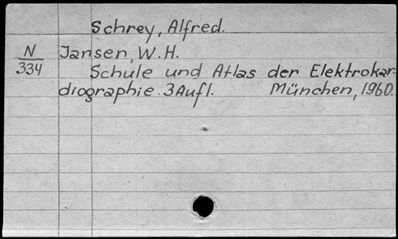 Schrey, Alfred.
N
334
Jansen, W. H.
Schule und Atlas der Elektrokar-
diographie. 3Aufl. München, 1960.